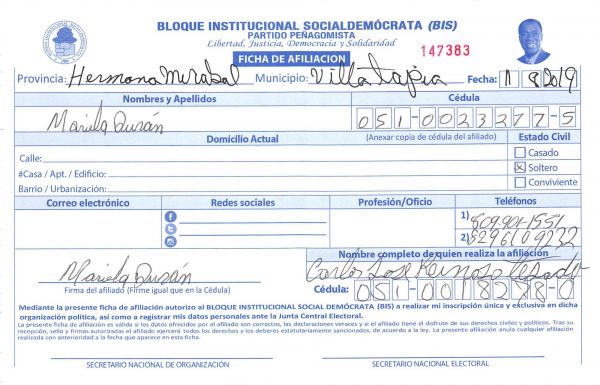 BLOQUE INSTITUCIONAL SOCIALDEMÓCRATA (BIS)
PARTIDO PEÑAGOMISTA
Libertad, Justicia, Democracia y Solidaridad
FICHA DE AFILIACION
147383
Provincia: Hermana Mirabal Municipio: Villa tapia Fecha: 1 8 2019
Nombres y Apellidos Cédula
Mariela Durán 051-0023277-5
Domicilio Actual (Anexar copia de cédula del afiliado) Estado Civil
Calle: Casado
#Casa / Apt. / Edificio: Soltero
Barrio / Urbanización: Conviviente
Correo electrónico Redes sociales Profesión/Oficio Teléfonos
1) 809-901-1551
2) 8296109232
Nombre completo de quien realiza la afiliación
Mariela Durán Carlos José
Firma del afiliado (Firme igual que en la Cédula) Cédula: 051-0018288-0
Mediante la presente ficha de afiliación autorizo al BLOQUE INSTITUCIONAL SOCIAL DEMÓCRATA (BIS) a realizar mi inscripción única y exclusiva en dicha
organización política, así como a registrar mis datos personales ante la Junta Central Electoral.
La presente ficha de afiliación es válida si los datos ofrecidos por el afiliado son correctos, las declaraciones veraces y si el afiliado tiene el disfrute de sus derechos civiles y políticos. Tras su
recepción, sello y firmas autorizadas el afiliado ejercerá todos los derechos y los deberes estatutariamente sancionados, de acuerdo a la ley. La presente afiliación anula cualquier afiliación
realizada con anterioridad a la fecha que aparece en esta ficha.
SECRETARIO NACIONAL DE ORGANIZACIÓN SECRETARIO NACIONAL ELECTORAL